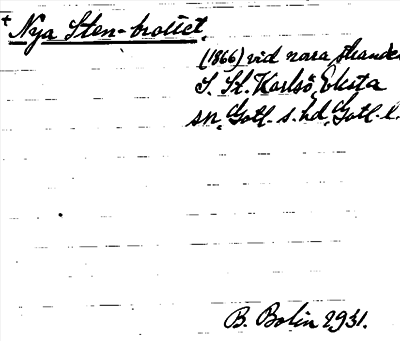 + Nya Sten-brottet.
(1866) vid norra stranden
S. St. Karlsö, Eksta
sn, Gotl. s. hd, Gotl. l.
B. Bolin 1931.